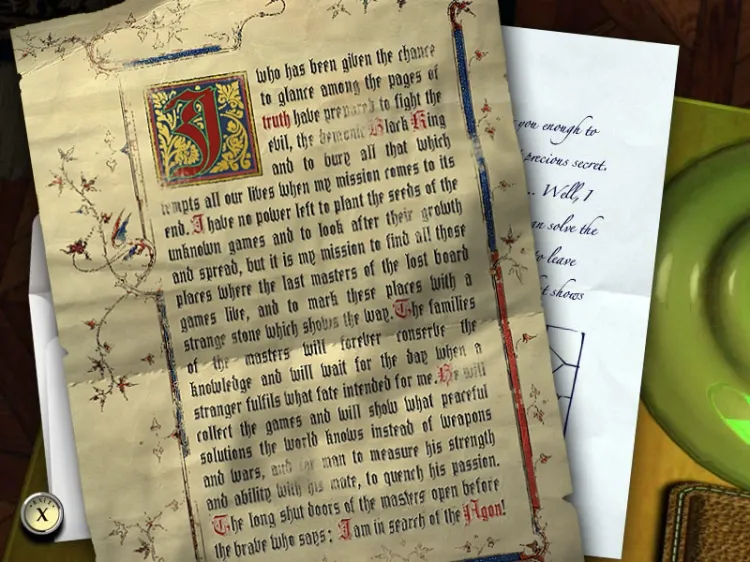 I who has been given the chance
to glance among the pages of
truth have prepared to fight the
evil, the demonic Black King
and to bury all that which
tempts all our lives when my mission comes to its
end. I have no power left to plant the seeds of the
unknown games and to look after their growth
and spread, but it is my mission to find all those
places where the last masters of the lost board
games live, and to mark these places with a
strange stone which shows the way. The families
of the masters will forever conserve the
knowledge and will wait for the day when a
stranger fulfils what fate intended for me. He will
collect the games and will show what peaceful
solutions the world knows instead of weapons
and wars, and the man to measure his strength
and ability with his mate, to quench his passion.
The long shut doors of the masters open before
the brave who says: I am in search of the Agon!
you enough to
precious secret.
... Well, I
an solve the
to leave
t shows
X